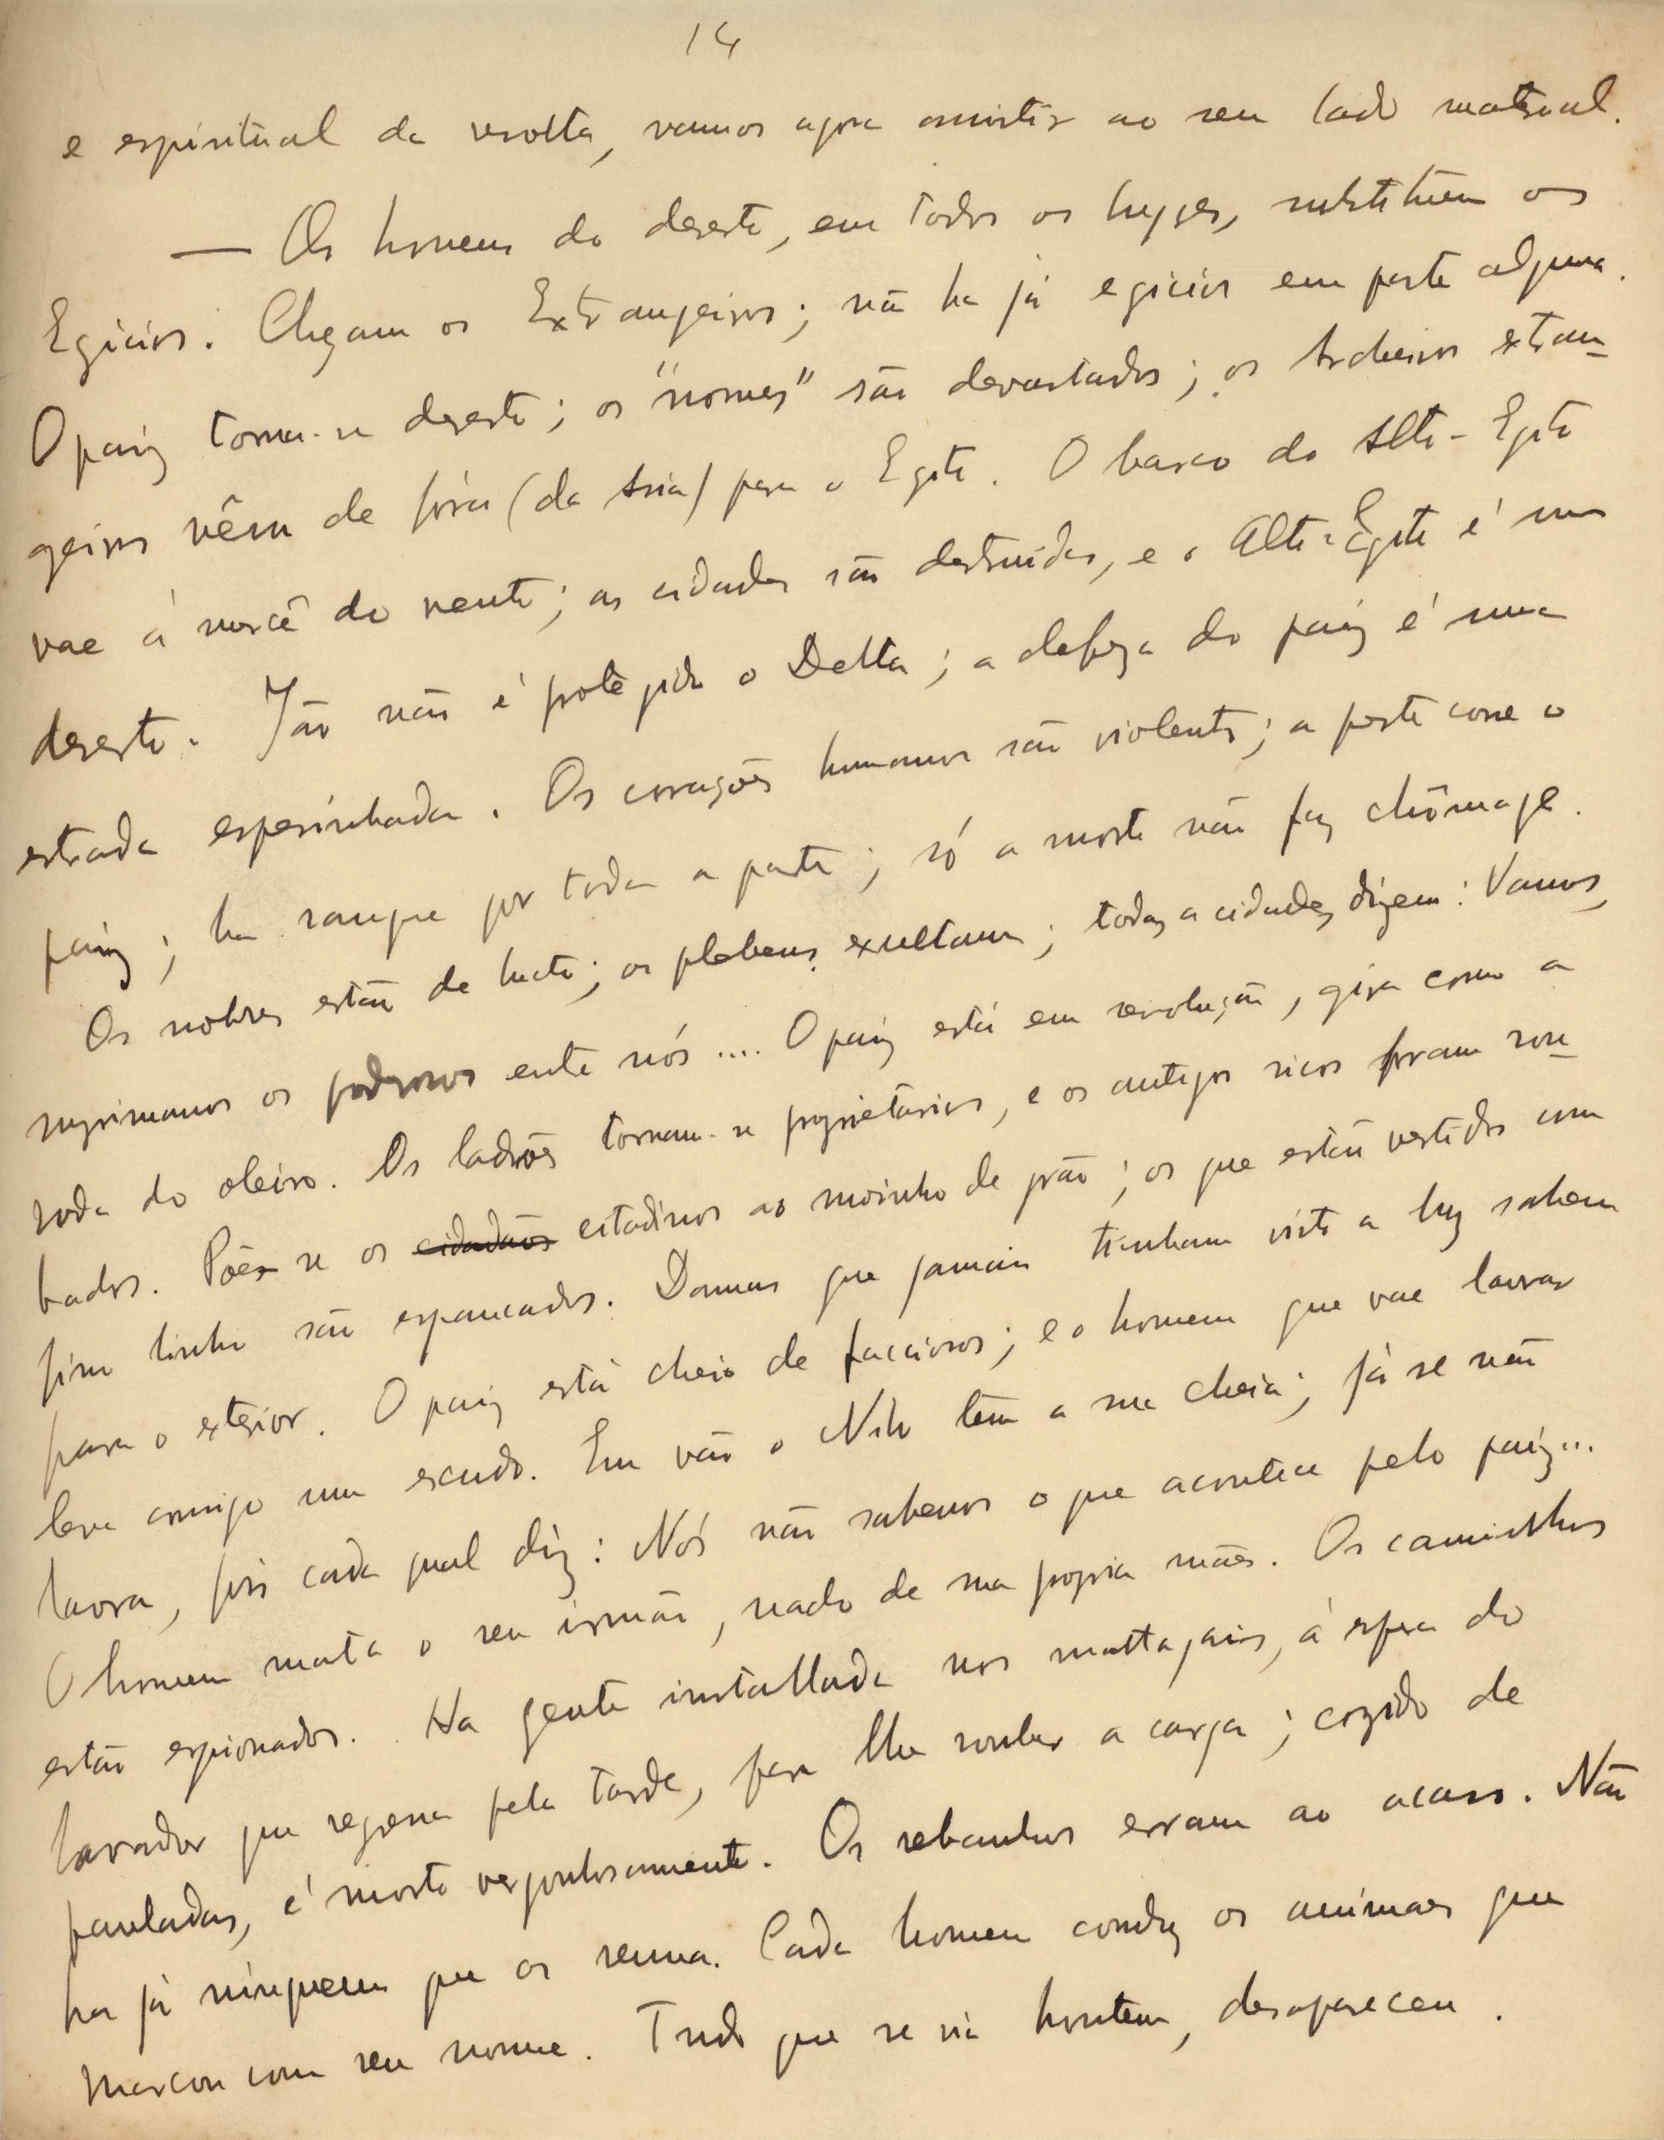 14
e espiritual da revolta, vamos agora assistir ao seu lado material.
— Os homens do deserto, em todos os lugares, substituem os
Egicios. Chegam os Extrangeiros; não ha já egicios em parte alguma.
O paiz torna-se deserto; os "nomes" são devastados; os Archeiros extran-
geiros vêm de fóra (da Asia) para o Egito. O barco do Alto-Egito
vae á mercê do vento; as cidades são destruidas, e o Alto-Egito é um
deserto. Já não é protegido o Delta; a defeza do paiz é uma
estrada espesinhada. Os corações humanos são violentos; a peste corre o
paiz; ha sangue por toda a parte; só a morte não faz chômage.
Os nobres estão de lucto; os plebeus exultam; todas as cidades dizem: Vamos,
suprimamos os poderosos entre nós.... O paiz está em revolução, gira como a
roda do oleiro. Os ladrões tornam-se proprietarios, e os antigos ricos foram rou-
bados. Põe-se os cidadãos citadinos ao moinho de grão; os que estão vestidos com
fino linho são espancados. Damas que jamais tinham visto a luz sahem
para o exterior. O paiz está cheio de facciosos; e o homem que vae lavrar
leva comsigo um escudo. Em vão o Nilo tem a sua cheia; já se não
lavra, pois cada qual diz: Nós não sabemos o que acontece pelo paiz...
O homem mata o seu irmão, nado de sua propria mãe. Os caminhos
estão espionados. Ha gente installada nos mattagais, á espera do
lavrador que regressa pela tarde, para lhe roubar a carga; cozido de
pauladas, é morto vergonhosamente. Os rebanhos erram ao acaso. Não
ha já ninguem que os reuna. Cada homem conduz os animaes que
marcou com seu nome. Tudo que se via hontem, desapareceu.